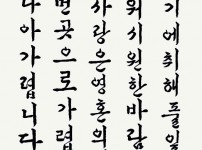 기에취해풀잎
위시원한바람
사랑은영혼의
먼곳으로가렵
나아가렵니다